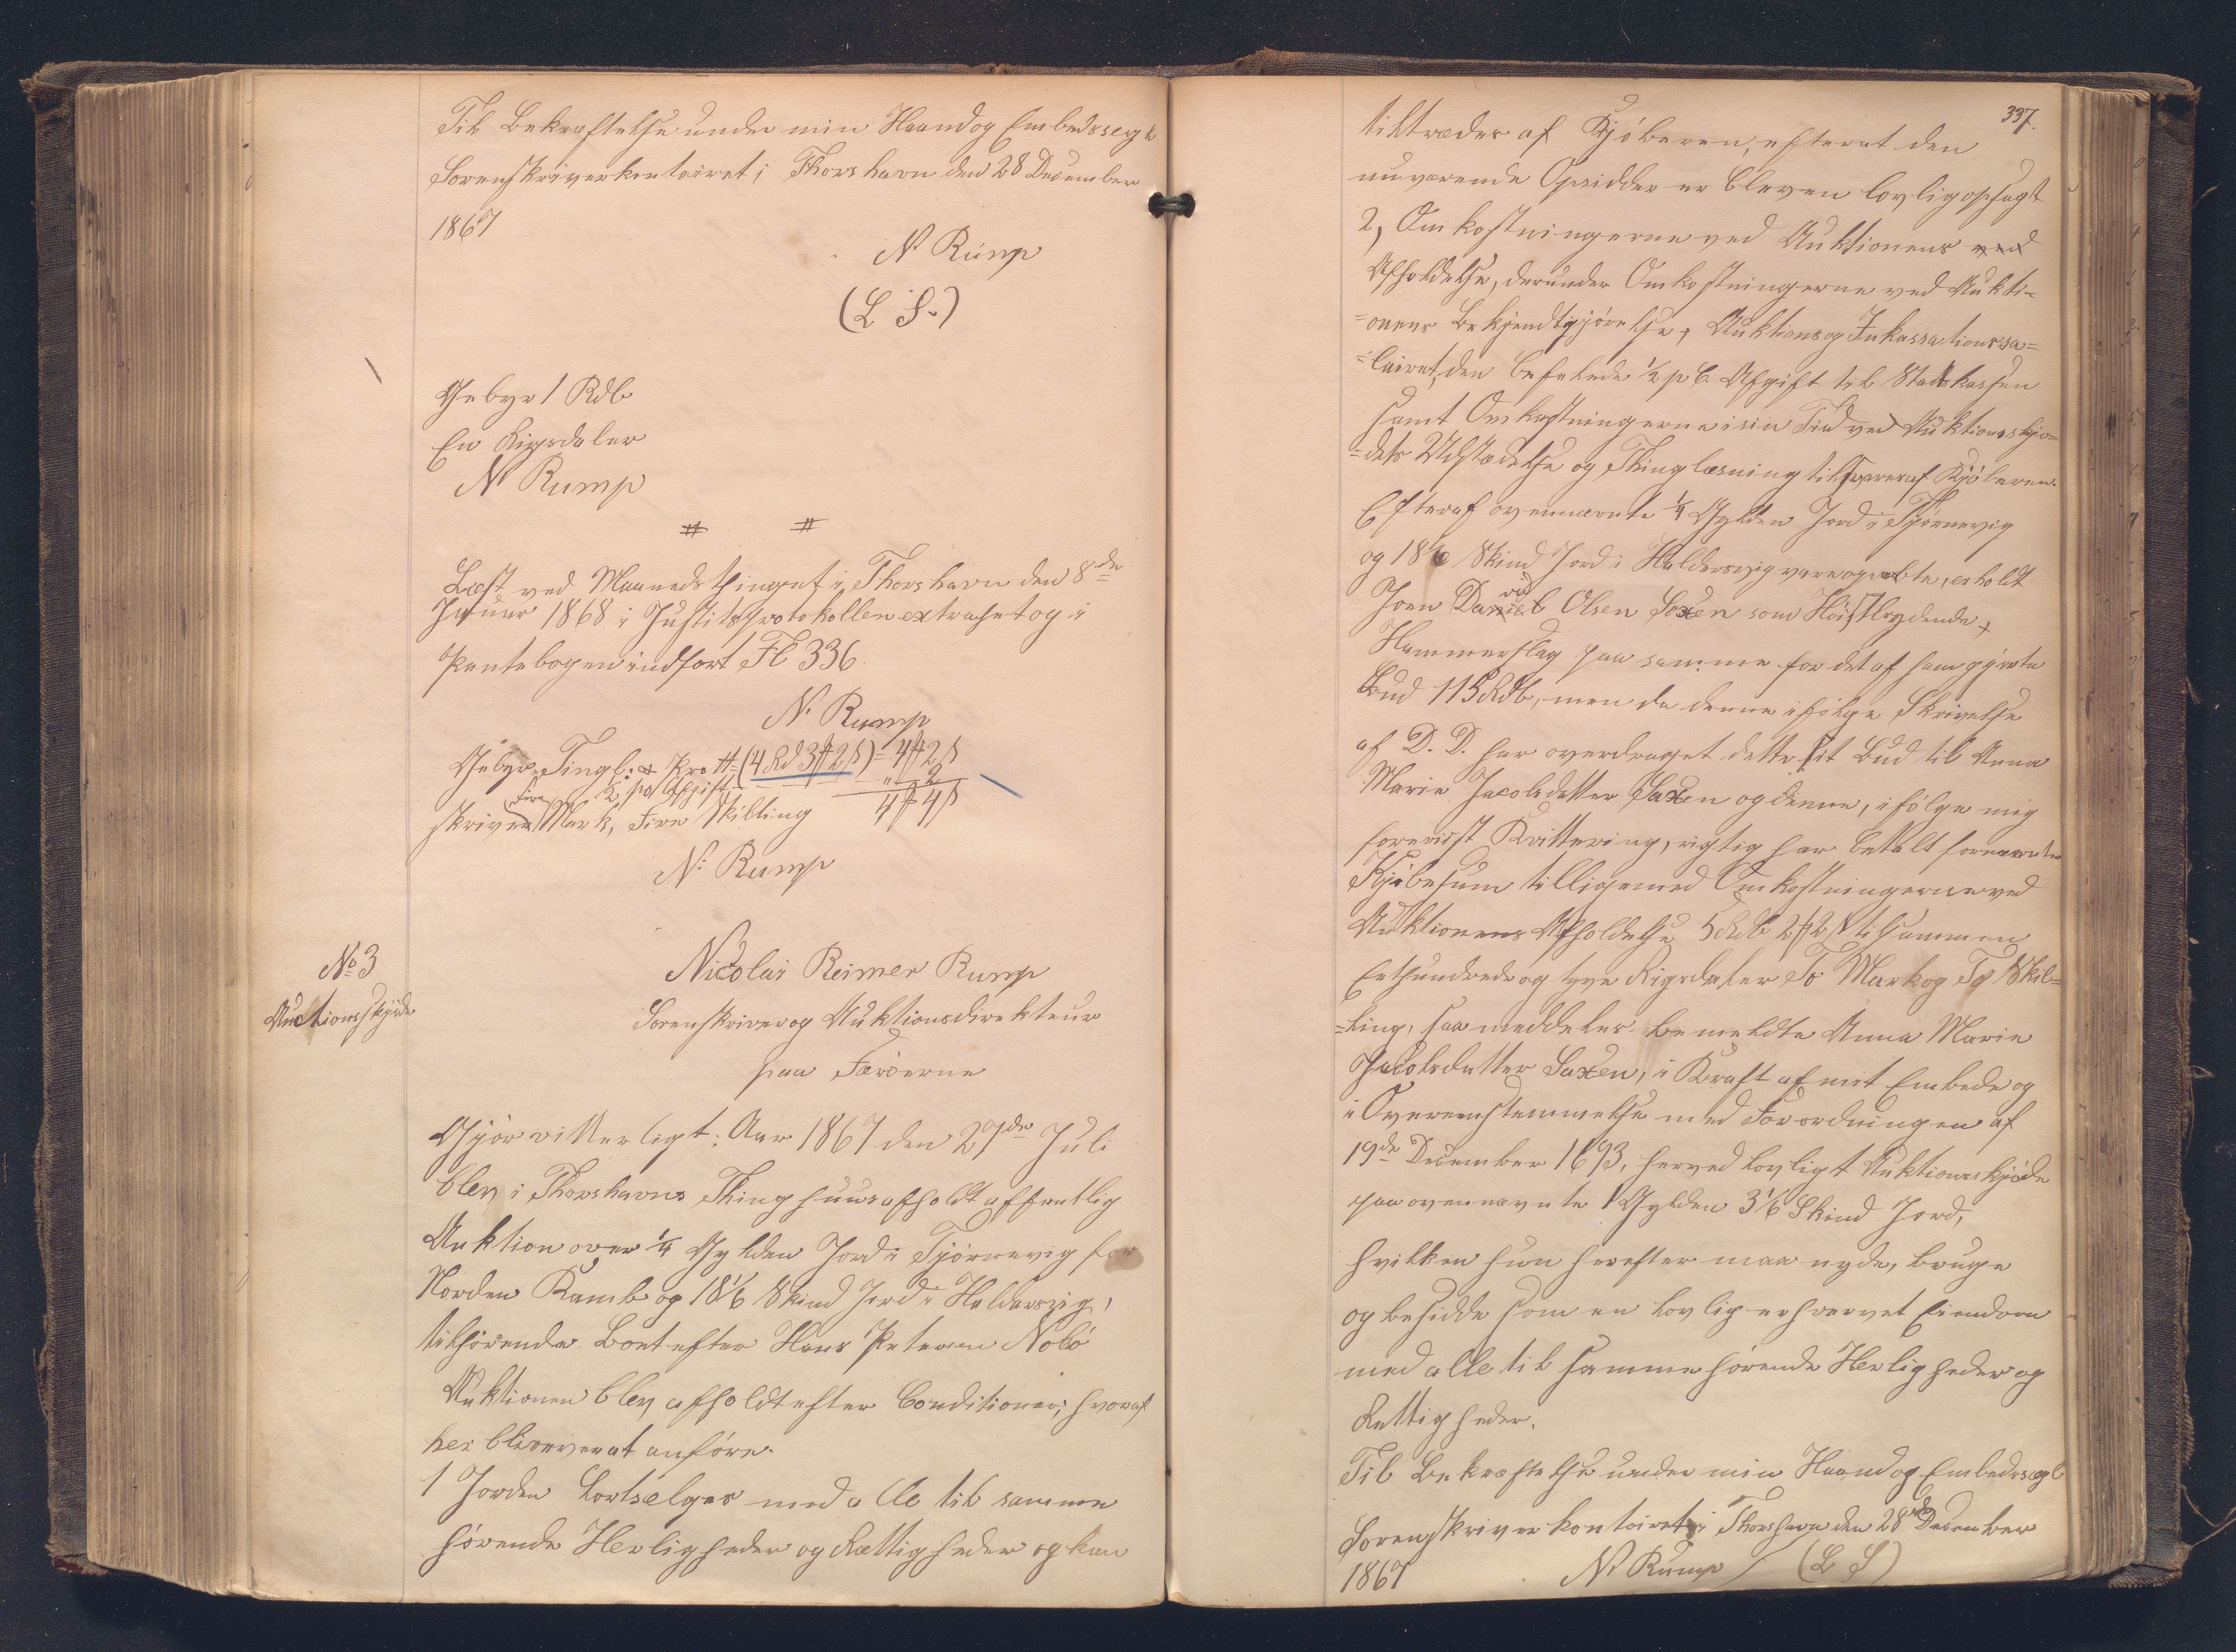 Til Bekræftelse under min Haand og Embedssegl
Sorenskriverkontoiret i Thorshavn den 28 December
1867
N. Rump
(L. S.)
Gebyr 1 Rdl
En Rigsdaler
N. Rump
Læst ved Maanedsthinget i Thorshavn den 8de
Januar 1868 i Justitsprotokollen extraheret og i
Pantebogen indført Fl 336
N. Rump
Gebyr. Tingl: & Prot (4 Rd 3 ₻ 2 β) = 4 ₻ 2 β
½ pCt Afgift " 2
skriver Fire Mark, Fire Skilling 4 ₻ 4 β
N. Rump
No 3
Auctionsskjøde
Nicolai Reimer Rump
Sorenskriver og Auktionsdirekteur
paa Færøerne
Gjør vitterligt: Aar 1867 den 27de Juli
blev i Thorshavns Thinghuus afholdt offentlig
Auktion over ¼ Gylden Jord i Tjørnevig for
Norden Kamb og 18⅙ Skind Jord i Haldersvig,
tilhørende Boet efter Hans Petersen
Auktionen blev afholdt efter Conditioner, hvoraf
her bliver at anføre.
1 Jorden bortsælges med alle til samme
hørende Herligheder og Rettigheder og kan
337.
tiltrædes af Kjøberen, efterat den
nuværende Opsidder er bleven lovlig opsagt
2, Omkostningerne ved Auktionens ved
Afholdelse, derunder Omkostningerne ved Aukti=
=onens Bekjendtgjørelse, Auktions og Inkassationssa=
=lairet, den befalede ½ p C. Afgift til Statskassen
samt Omkostningerne i sin Tid ved Auktionsskjø=
=dets Udstædelse og Thinglæsning tilsvares af Kjøberen.
Efterat ovennævnte ¼ Gylden Jord i Tjørnevig
og 18⅙ Skind Jord i Haldersvig vare opraabte, erholdt
Joen David Olsen Saxen som Høistbydende,
Hammerslag paa samme for det af ham gjorte
Bud 115 Rdl, men da denne ifølge Skrivelse
af D. D. har overdraget dette sit Bud til Anna
Marie Jacobsdatter Saxen og denne, ifølge mig
foreviist Kvittering, rigtig har betalt fornævnte
Kjøbesum tilligemed Omkostningerne ved
Auktionens Afholdelse 5 Rdl 2 ₻ 2 β tilsammen
Ethundrede og tyve Rigsdaler To Mark og To Skil=
=ling, saa meddeles bemeldte Anna Marie
Jacobsdatter Saxen, i Kraft af mit Embede og
i Overeensstemmelse med Forordningen af
19de December 1693, herved lovligt Auktionsskjøde
paa ovennævnte 1 Gylden 3⅙ Skind Jord,
hvilken hun herefter maa nyde, bruge
og besidde som en lovlig erhvervet Eiendom
med alle til samme hørende Herligheder og
Rettigheder.
Til Bekræftelse under min Haand og Embedssegl
Sorenskriverkontoiret i Thorshavn den 28de December
1867 N. Rump (L S)